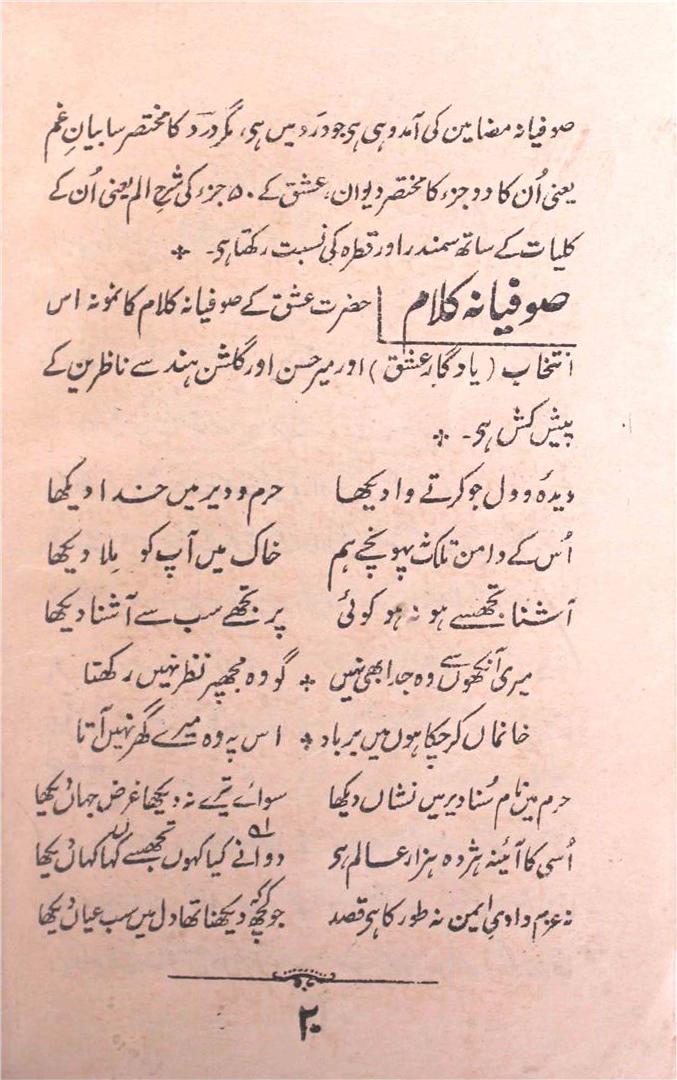 صوفیانہ مضامین کی آمد وہی ہی جو درد میں ہی، مگر درد کا مختصر سا بیانِ غم
یعنی اُن کا دو جزء کا مختصر دیوان، عشق کے ۵۰ جزء کی شرحِ الم یعنی اُن کے
کلیات کے ساتھ سمندر اور قطرہ کی نسبت رکھتا ہی۔
صوفیانہ کلام حضرت عشق کے صوفیانہ کلام کا نمونہ اس
انتخاب (یادگارِ عشق) اور میر حسن اور گلشن ہند سے ناظرین کے
پیش کش ہی۔
دیدہ و دل جو کرتے وا دیکھا حرم و دیر میں خدا دیکھا
اُس کے دامن تلک نہ پہونچے ہم خاک میں آپ کو مِلا دیکھا
آشنا تجھسے ہو نہ ہو کوئی پر تجھے سب سے آشنا دیکھا
میری آنکھوں سے وہ جدا بھی نہیں گو وہ مجھپر نظر نہیں رکھتا
خانماں کر چکا ہوں میں برباد اس پہ وہ میرے گھر نہیں آتا
حرم میں نام سُنا دیر میں نشاں دیکھا سوائے تیرے نہ دیکھا غرض جہاں دیکھا
اُسی کا آئنہ ہژدہ ہزار عالم ہی دوانے کیا کہوں تجھسے کہا کہاں دیکھا
نہ عزم وادیِ ایمن نہ طور کا ہی قصد جو کچھ کہ دیکھنا تھا دل میں سب عیاں دیکھا
۲۰